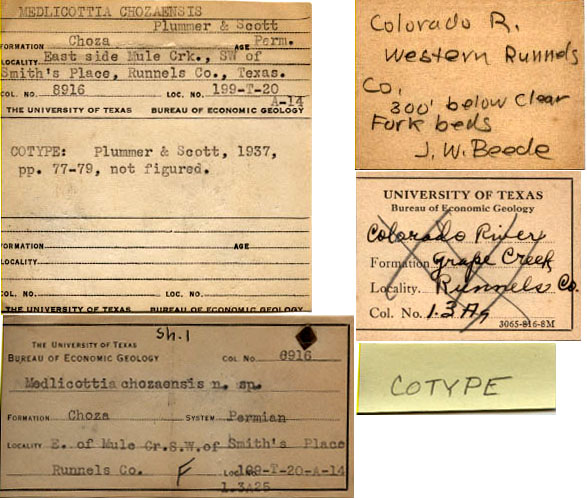 MEDLICOTTIA CHOZAENSIS
Plummer & Scott
FORMATION Choza AGE Perm.
LOCALITY East side Mule Crk., SW of
Smith's Place, Runnels Co., Texas.
COL. NO. 8916 LOC. NO. 199-T-20
A-14
THE UNIVERSITY OF TEXAS BUREAU OF ECONOMIC GEOLOGY
COTYPE: Plummer & Scott, 1937,
pp. 77-79, not figured.
FORMATION AGE
LOCALITY
COL. NO. LOC. NO.
THE UNIVERSITY OF TEXAS BUREAU OF ECONOMIC GEOLOGY
Sh.1
THE UNIVERSITY OF TEXAS
BUREAU OF ECONOMIC GEOLOGY COL NO 8916
Medlicottia chozaensis n. sp.
FORMATION Choza SYSTEM Permian
LOCALITY E. of Mule Cr.S.W.of Smith's Place
Runnels Co. F LOC NO 199-T-20-A-14
1.3A25
Colorado R.
Western Runnels
Co.
300' below Clear
Fork beds
J. W. Beede
UNIVERSITY OF TEXAS
Bureau of Economic Geology
Colorado River
Formation Grape Creek
Locality. Runnels Co.
Col. No.
3065-816-8M
COTYPE